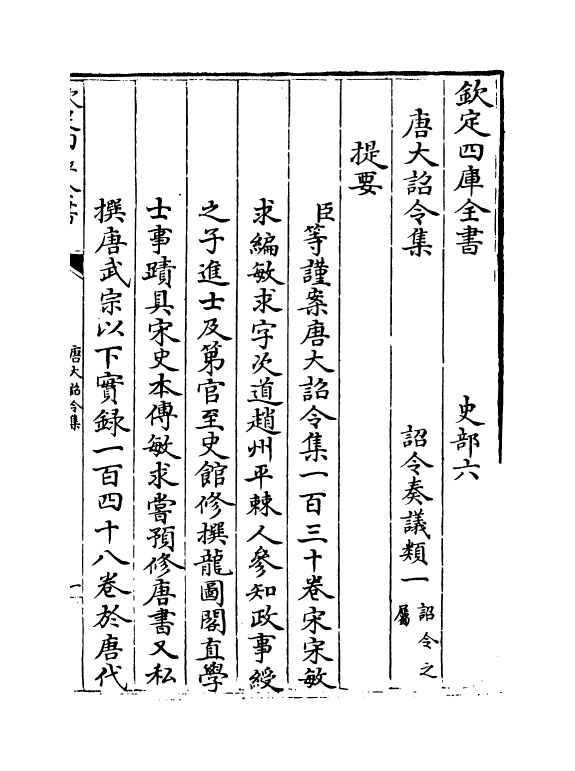 欽定四庫全書　史部六
唐大詔令集　詔令奏議類一詔令之屬
提要
臣等謹案唐大詔令集一百三十卷宋宋敏
求編敏求字次道趙州平棘人參知政事綬
之子進士及第官至史館修撰龍圖閣直學
士事蹟具宋史本傳敏求嘗預修唐書又私
撰唐武宗以下實録一百四十八卷於唐代
唐大詔令集
一